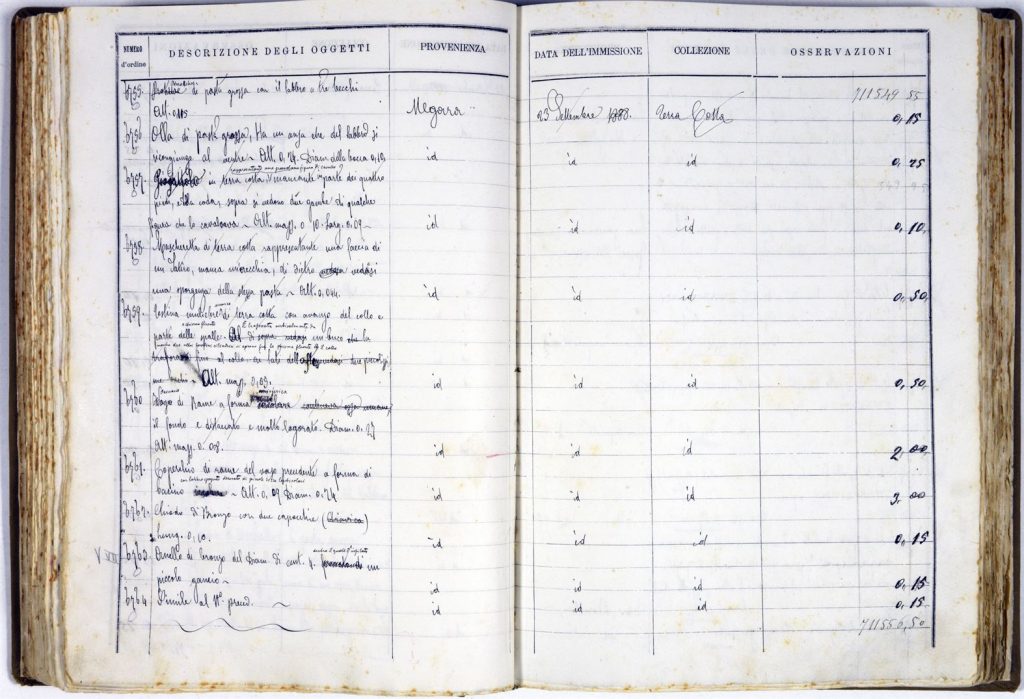 NUMERO d'ordine DESCRIZIONE DEGLI OGGETTI PROVENIENZA DATA DELL'IMMISSIONE COLLEZIONE OSSERVAZIONI
711549 55
di pasta grossa con il labbro a tre becchi
Alt. 0.115 Megara 23 Settembre 1888. Terra Cotta 0,15
6756 Olla di pasta grossa, Ha un ansa che dal labbro si
ricongiunge al ventre ~ Alt. 0,14. Diam. della bocca 0,10 id id id 0,25
6757. Giogattolo in terra cotta mancante parte dei quattro
piedi, e la coda, sopra si vedono due gambe di qualche
figura che lo cavalcava ~ Alt. mass. 0.10. Larg. 0.09 ~ id id id 0,10
6758. Mascheretta di terra cotta rappresentante una faccia di
un Satiro, manca un orecchia, di dietro vedesi
una sporgenza della stessa pasta ~ Alt. 0,044. id id id 0,50,
6759. Testina muliebre di terra cotta con avanzo del collo e
parte delle spalle. Al di sopra vedesi un buco che la
fino al collo. ai lati
~ Alt. mass. 0,09. id id id 0,50
6760 Vaso di Rame a forma
il fondo è distaccato e molto logorato. Diam. 0.27
Alt. mass. 0.08. id id id 2,00
6761. Coperchio di rame del vaso precedente a forma di
bacino ~ Alt. 0,09 Diam. 0.24 id id id 3,00
6762. Chiodo di Bronzo con due capocchie
Lung. 0,10. id id id 0,15
6763 Anello di bronzo del Diam. di cent. 4. un
piccolo gancio ~ id id id 0,15
6764 Simile al N° preced. ~ id id id 0,15
711556,50